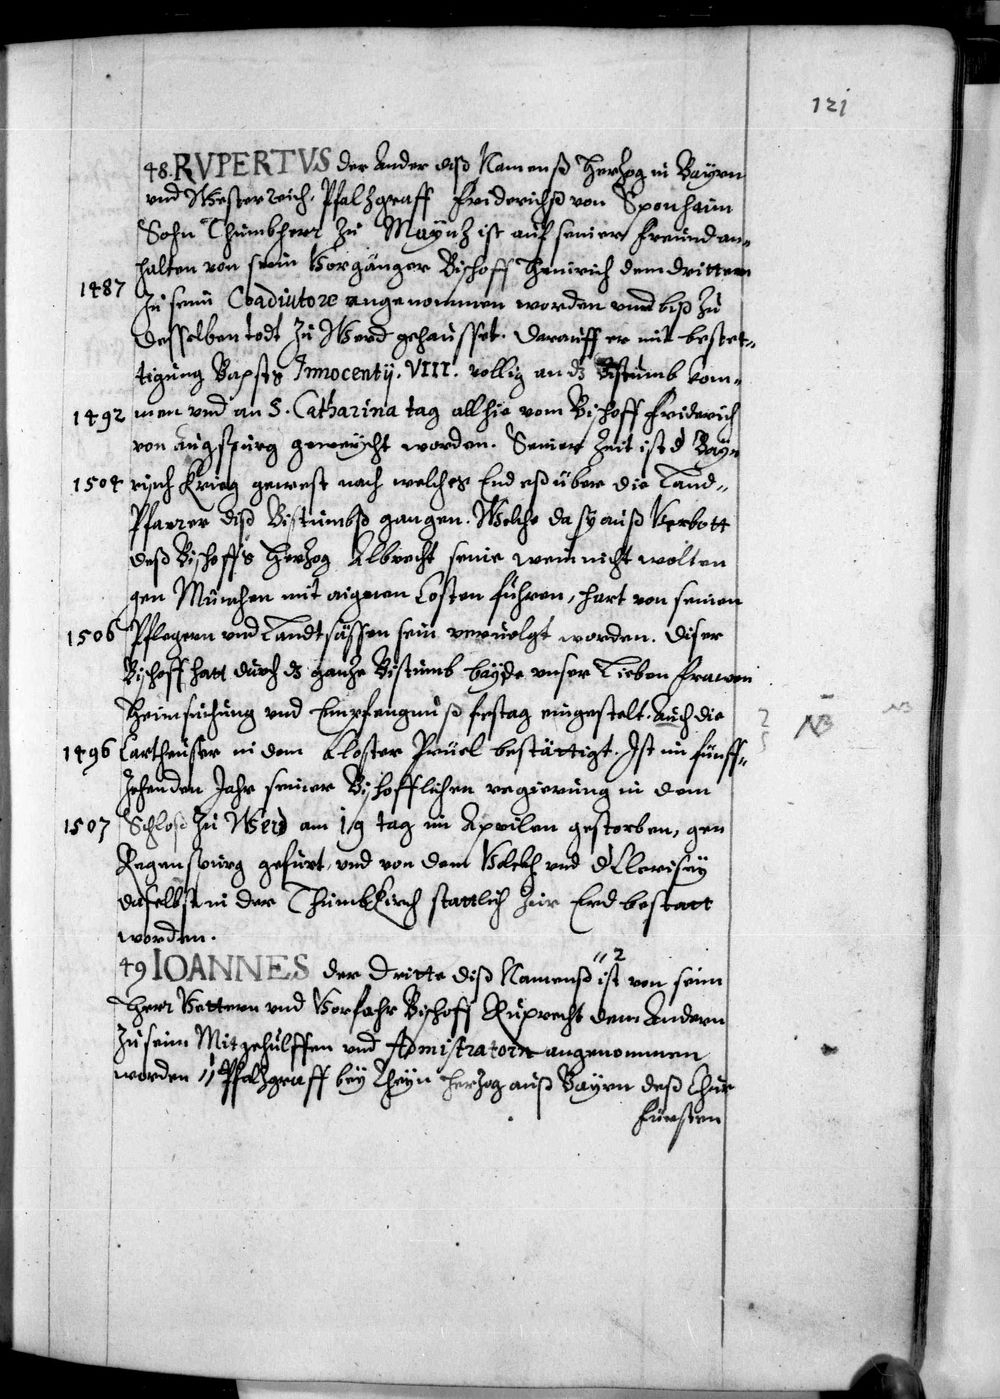 121
48. RVPERTVS der Ander diß Namenß Herzog in Bayrn
vnd Westerreich, Pfalzgraff Friderichß von Sponhaim
Sohn Thumbherr zu Maynz ist auf seiner Freund an„
halten von seim Vorgänger Bischoff Heinrich dem dritten
1487 zu seim Coadiutore angenommen worden vnd biß zu
desselben todt zu Werd gehausset. Darauff er mit bestet„
tigung Bapsts Innocentij. VIII. vollig an dz Bistumb kom„
1492 men vnd an S. Catharina tag allhie vom Bischoff Friderich
von Augspurg geweycht worden. Seiner Zeit ist d Bay„
1504 risch Krieg gewest nach welches End eß über die Land„
Pfarrer diß Bistumbß gangen. Welche da sy auß Verbott
deß Bischoffs Herzog Albrecht seine wein nicht wolten
gen München mit aignen Costen führen, hart von seinen
1506 Pflegern vnd Landtsässen sein veruolgt worden. Diser
Bischoff hatt durch dz ganze Bistumb bayde vnser Lieben Frawen
Heimsuchung vnd Empfengnuß festag eingestelt. Auch die
NB
1496 Cartheuser in dem Closter Prüel bestättigt. Ist im fünff„
zehenden Jahr seiner Bischofflichen regierung in dem
1507 Schloß zu Werd am 19 tag im Aprilen gestorben, gen
Regenspurg gefürt, vnd von dem Volckh vnd d Clerisey
daselbst in der Thumbkirch stattlich zur Erd bestatt
worden.
49 IOANNES der Dritte diß Namenß "2 ist von seim
Herr Vettern vnd Vorfahr Bischoff Ruprecht dem Andern
zu seim Mitgehülffen vnd Admistratorn angenommen
worden "1 Pfalzgraff bey Rheyn Herzog auß Bayrn deß Chur
Fürsten